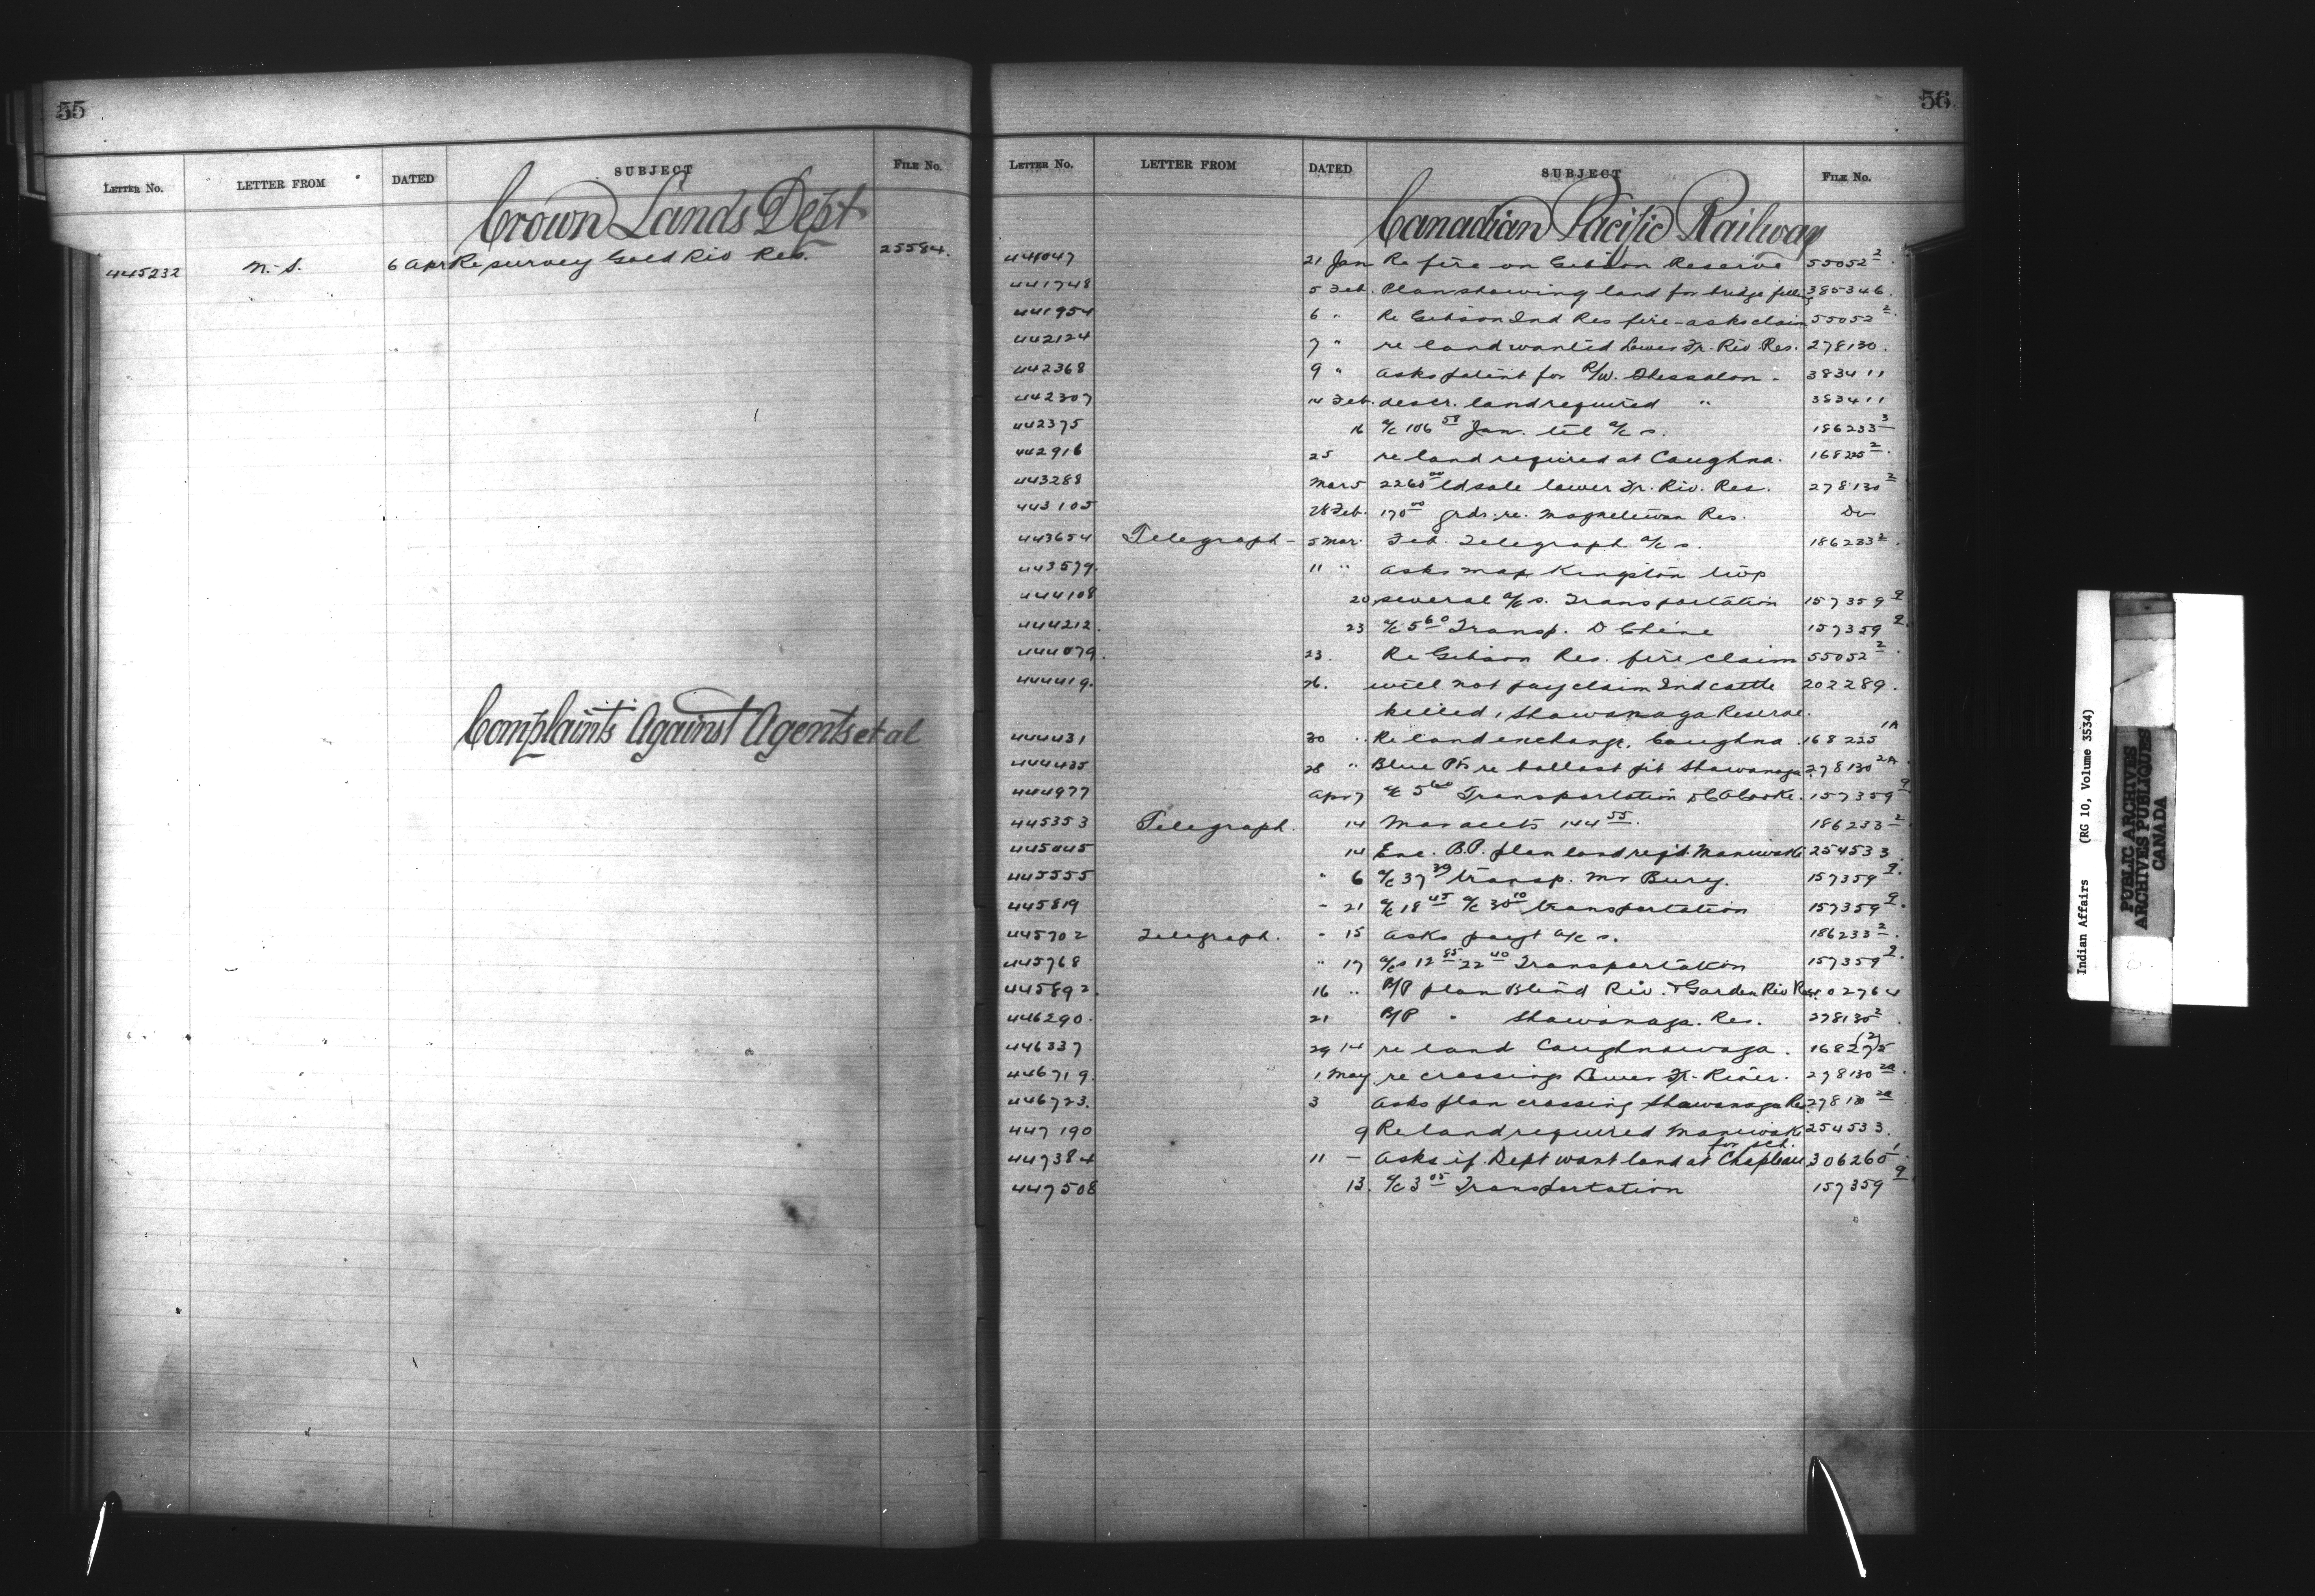 55
LETTER NO. LETTER FROM DATED SUBJECT FILE NO.
Crown Lands Dept
445232 N.S. 6 Apr Re survey Gold Riv Res. 25584.
Complaints Against Agents et al
56
LETTER NO. LETTER FROM DATED SUBJECT FILE NO.
Canadian Pacific Railway
441047 21 Jan Re fire on Gibson Reserve 55052 2
441748 5 Feb. Plan showing land for bridge 385346.
441954 6 " Re Gibson Ind Res fire - asks claim 55052 2
442124 7 " re land wanted Lower Fr. Riv. Res. 278130.
442368 9 " asks patent for R/W. Thessalon - 383411
442307 14 Feb. descr. land required " 383411
442375 16 a/c 106 58 Jan. tel a/c s. 186233 3
442916 25 re land required at Caughna. 168225 2
443288 Mar 5 2260 00 ld sale lower Fr. Riv. Res. 278130 2
443105 28 Feb. 170 00 grds. re. Magnetewan Res. Do
443654 Telegraph - 5 Mar. Feb. Telegraph a/c s. 186233 2.
443579. 11 " asks map Kingston twp
444108 20 several a/c s. Transportation 157359 9
444212. 23 a/c 5 60 Transp. D Chene 157359 9.
444079. 23. Re Gibson Res. fire claim 55052 2
444419. 26. will not pay claim Ind cattle 202289.
killed, Shawanaga Reserve.
444431 30 " Re land exchange, Caughna. 168225 1A
444435 28 " Blue Pts re ballast pit Shawanaga 278130 2A.
444977 Apr 7 a/c 5 60 Transportation D C A Cooke. 157359 9
445353 Telegraph. 14 Mar accts 144 55. 186233 2
445045 14 Enc. B.P. plan land req'd. Maniwaki 254533.
445555 " 6 a/c 37 39 transp. Mr Bury. 157359 9.
445819 - 21 a/c 18 45 a/c 30 10 transportation 157359 9.
445702 Telegraph. - 15 asks payt a/c s. 186233 2.
445768 " 17 a/cs 12 85 22 40 Transportation 157359 9.
445892. 16 " B/P plan Blind Riv. & Garden Riv Res. 402764
446290. 21 B/P " Shawanaga. Res. 278130 2.
446337 29 14 re land Caughnawaga. 168225 (2)
446719. 1 May re crossings Lower Fr. River. 278130 2a.
446723. 3 asks plan crossing Shawanaga Res. 278130 2a
447190 9 Re land required Maniwaki 254533.
for sch.
447384 11 - Asks if Dept want land at Chapleau 306260 1.
447508 13. a/c 3 05 Transportation 157359 9
Indian Affairs (RG 10, Volume 3534)
PUBLIC ARCHIVES
ARCHIVES PUBLIQUES
CANADA